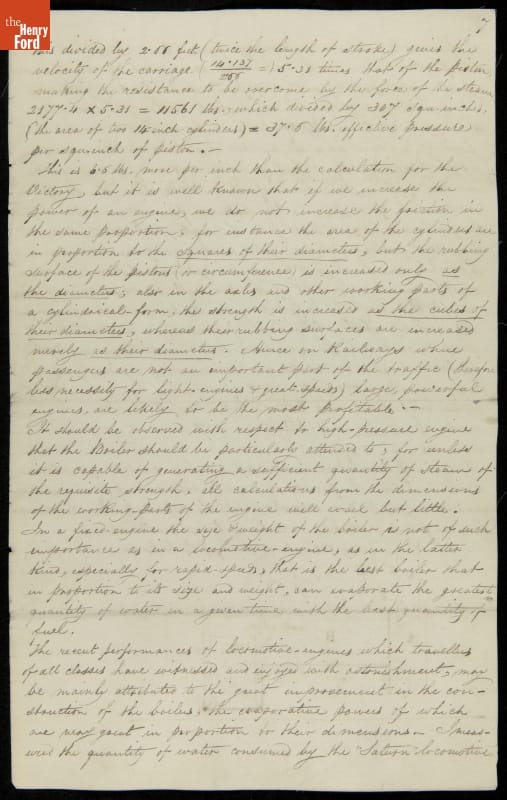 the Henry Ford
7
this divided by 2·66 feet (twice the length of stroke) gives the
velocity of the carriage (14·137/266 =) 5·31 times that of the piston,
making the resistance to be overcome by the force of the steam
2177·4 × 5·31 = 11561 lbs. which divided by 307 squ. inches
(the area of two 14 inch cylinders) = 37·6 lbs. effective pressure
per squ. inch of piston. —
This is 6·6 lbs. more per inch than the calculation for the
Victory, but it is well known that if we increase the
power of an engine, we do not increase the friction in
the same proportion; for instance the area of the cylinders are
in proportion to the squares of their diameters, but the rubbing
surface of the pistons (or circumference) is increased only as
the diameters; also in the axles and other working parts of
a cylindrical form, the strength is increased as the cubes of
their diameters, whereas their rubbing surfaces are increased
merely as their diameters. Hence on Railways where
passengers are not an important part of the traffic (therefore
less necessity for light-engines & great speeds) large powerful
engines, are likely to be the most profitable. —
It should be observed with respect to high-pressure engine
that the Boiler should be particularly attended to; for unless
it is capable of generating a sufficient quantity of steam of
the requisite strength, all calculations from the dimensions
of the working-parts of the engine will avail but little.
In a fixed-engine the size & weight of the boiler is not of such
importance as in a locomotive-engine, as in the latter
kind, especially for rapid-speeds, that is the best boiler that
in proportion to its size and weight, can evaporate the greatest
quantity of water in a given time with the least quantity of
fuel.
The recent performances of locomotive-engines which travellers
of all classes have witnessed and enjoyed with astonishment, may
be mainly attributed to the great improvement in the con-
struction of the boiler, the evaporative powers of which
are very great in proportion to their dimensions. I meas-
ured the quantity of water consumed by the "Saturn" locomotive